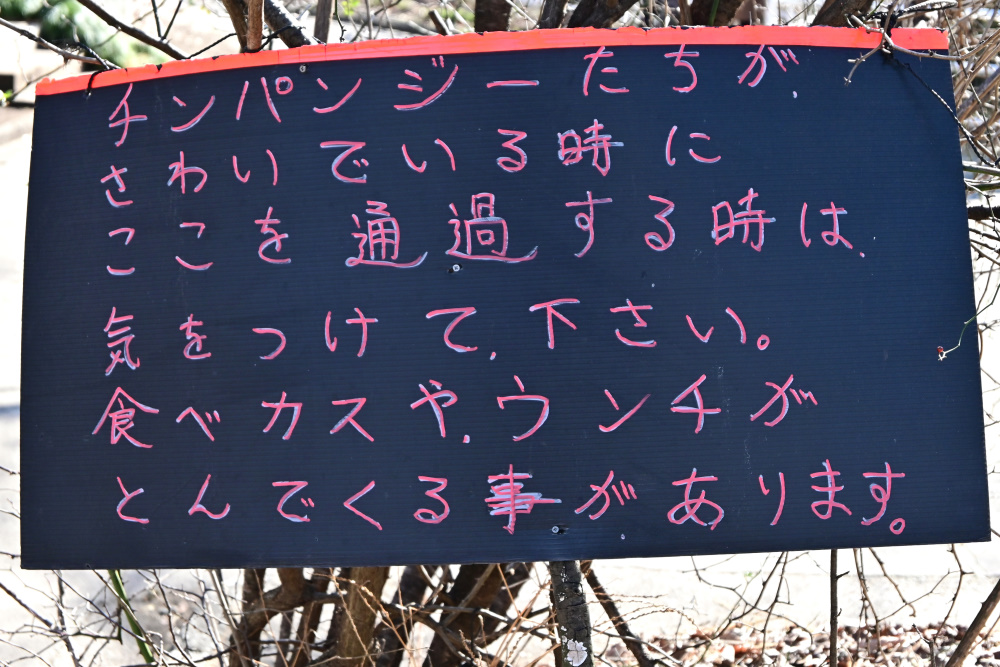 チンパンジーたちが、
さわいでいる時に
ここを通過する時は、
気をつけて、下さい。
食べカスや、ウンチが
とんでくる事があります。